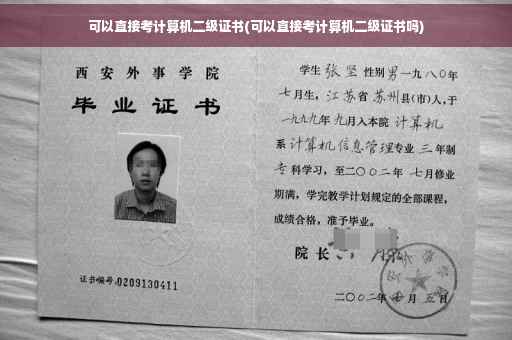 可以直接考计算机二级证书(可以直接考计算机二级证书吗)
西安外事学院
毕业证书
证书编号:0209130411
学生 张坚 性别男一九八〇年
七月生, 江苏省 苏州县(市)人,于
一九九九年 九月入本院 计算机
系 计算机信息管理专业 三 年制
专 科学习, 至二〇〇二年 七月修业
期满, 学完教学计划规定的全部课程,
成绩合格, 准予毕业。
院 长
二〇〇二年 月 五日